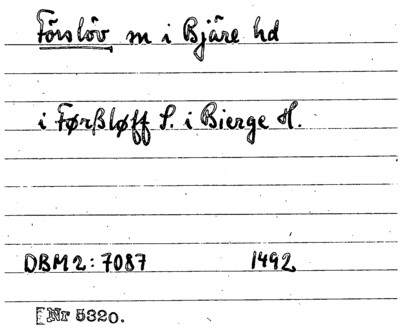 Förslöv m i Bjäre hd
i Førßløff S. i Bierge H.
DBM2: 7087 1492
[Nr 5320.